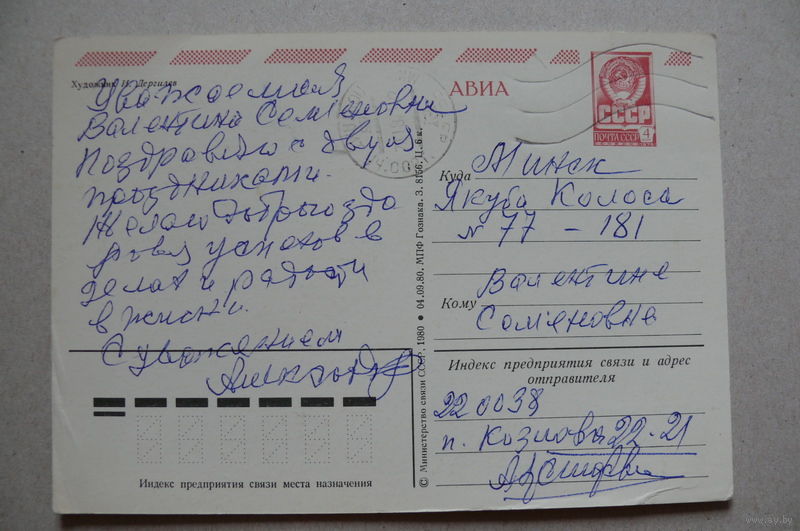 Художник И. Дергилев
Уважаемая
Валентина Семёновна
Поздравляю с двумя
праздниками.
Желаю доброго здо
ровья успехов в
делах и радости
в жизни.
С уважением
АВИА
СССР
ПОЧТА СССР 4 к
Куда Минск
Якуба Коласа
№ 77 – 181
Валентине
Кому
Семёновне
Индекс предприятия связи и адрес
отправителя
220038
п. Козлова 22-21
Индекс предприятия связи места назначения
© Министерство связи СССР, 1980 ● 04.09.80. МПФ Гознака. З. 8156. Ц. 6 к.
www.ay.by